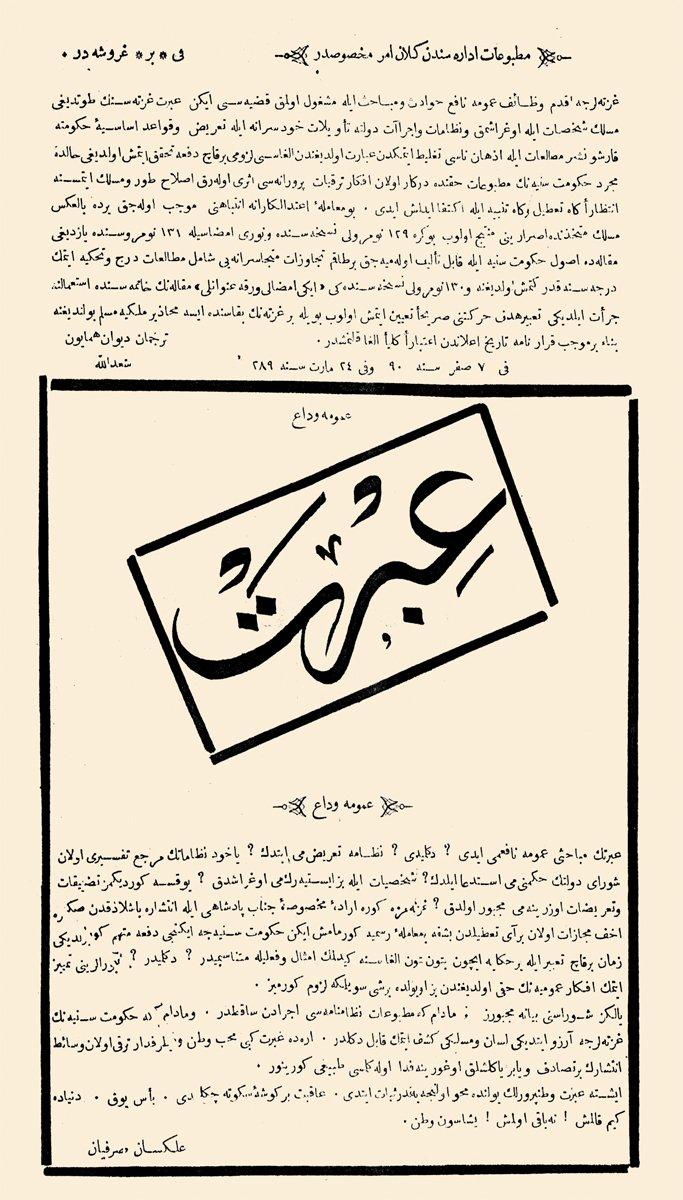 مطبوعات اداره سندن کلان امر مخصوصدر
فی * بر * غروشه در ٠
غزته لرجه اقدم وظائف عمومه نافع حوادث ومباحث ايله مشغول اولق قضيه سی ایکن عبرت غزته سنك طوتديغی
مسلك شخصيات ايله اوغراشمق ونظامات واجراآت دولته تأويلات خودسرانه ايله تعريض وقواعد اساسيهٔ حكومته
قارشو نشر مطالعات ايله اذهان ناسی تغليط ايتمكدن عبارت اولديغندن الغاسی لزومی برقاچ دفعه تحقق ايتمش اولديغی حالده
مجرد حكومت سنيه نك مطبوعات حقنده درکار اولان افكار ترقيات پرورانه سی اثری اوله رق اصلاح طور ومسلك ايتمسنه
انتظاراً كاه تعطيل وكاه تنبيه ايله اكتفا ايدلمش ايدی ٠ بومعاملهٔ اعتدالكارانه انتباهنی موجب اوله جق يرده بالعكس
مسلك متخذنده اصرار ينی منتج اولوب بوكره ١٢٩ نومرولی نسخه سنده ونوری امضاسيله ١٣١ نومروسنده يازديغی
مقاله ده اصول حكومت سنيه ايله قابل تأليف اوله ميه جق برطاقم تجاوزات متجاسرانه يی شامل مطالعات درج وتحكيه ايتمك
درجه سنه قدر كتمش اولديغنه و١٣٠ نومرولی نسخه سنده كی «ايكی امضالی ورقه عنوانلی» مقاله نك خاتمه سنده استعمالنه
جرأت ايلديكی تعبير هدف حركتنی صريحاً تعيين ايتمش اولوب بويله بر غزته نك بقاسنده ايسه محاذير ملكيه مسلم بولنديغنه
بناءً برموجب قرار نامه تاريخ اعلاندن اعتباراً كلياً الغا قلنمشدر ٠
ترجمان ديوان همايون
فی ٧ صفر سنه ٩٠ وفی ٢٤ مارت سنه ٢٨٩
سعدالله
عمومه وداع
عبرت
عمومه وداع
عبرتك مباحثی عمومه نافعمی ايدی ? دكلميدی ? نظامه تعريض می ايتدك ? ياخود نظاماتك مرجع تفسيری اولان
شورای دولتك حكمنی می استدعا ايلدك ? شخصيات ايله بز ايستيه رك می اوغراشدق ? يوقسه كورديكمز تضيقات
وتعريضات اوزرينه می مجبور اولدق ? غزته مزه كوره ارادهٔ مخصوصهٔ جناب پادشاهی ايله انتشاره باشلاذقدن صكره
اخف مجازات اولان برآی تعطيلدن بشقه بر معاملهٔ رسميه كورمامش ايكن حكومت سنيه جه ايكنجی دفعه متهم
زمان برقاچ تعبير ايله برحكايه ايچون بتون بتون الغاسنه كيدلمك امثال وفعليله متناسبميدر ? دكلميدر ?
ايتمك افكار عموميه نك حقی اولديغندن بز اوبولده برشی سويلمكه لزوم كورميز ٠
يالكز شوراسنی بيانه مجبورز ; مادام كه مطبوعات نظامنامه سی اجرادن ساقطدر ٠ ومادام كه حكومت سنيه نك
غزته لرجه آرزو ايتديكی لسان ومسلكی كشف ايتمك قابل دكلدر ٠ اره ده غيرت كبی محب وطن وطرفدار ترقی اولان وسائط
انتشارك برتصادف ويا بر ياكلشلق اوغورينه فدا اوله كلمسی طبيعی كورينور ٠
ايشته عبرت وطنپرورلك يولنده محو اولنجيه قدر ثبات ايتدی ٠ عاقبت بر كوشهٔ سكوته چكلدی ٠ بأس يوق ٠ دنياده
كيم قالمش ! نه باقی اولمش ! يشاسون وطن ٠
علكسان صرفيان